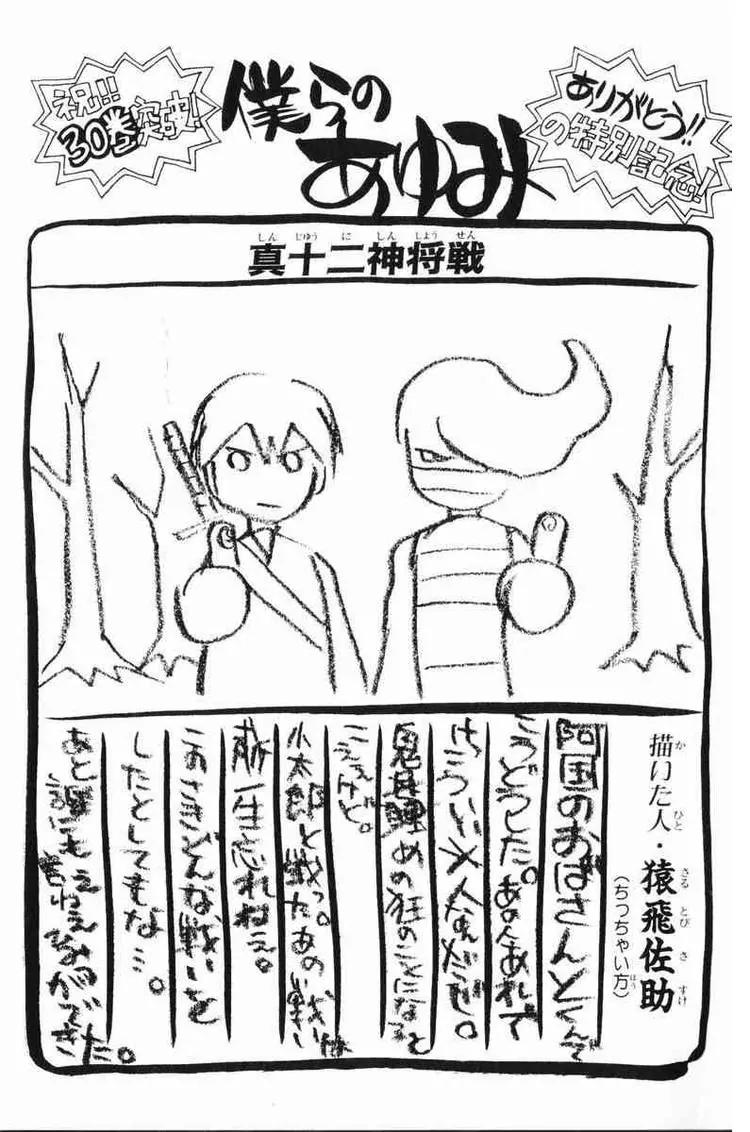 祝!!
30巻突破!
僕らの
あゆみ
ありがとう!!
の特別記念!
真十二神将戦
しんじゅうにしんしょうせん
描いた人・猿飛佐助
かひとさるとびさすけ
(ちっちゃい方)
ほう
阿国のおばさんとくんで
こうどうした。あの人あれで
けっこういい人なんだぜ。
鬼庭
めの狂のことになると
こえぇけど。
小太郎と戦った。あの戦いは
一生忘れねェ。
このさきどんな戦いを
したとしてもな…。
あと誰にも言えねェ
ができた。